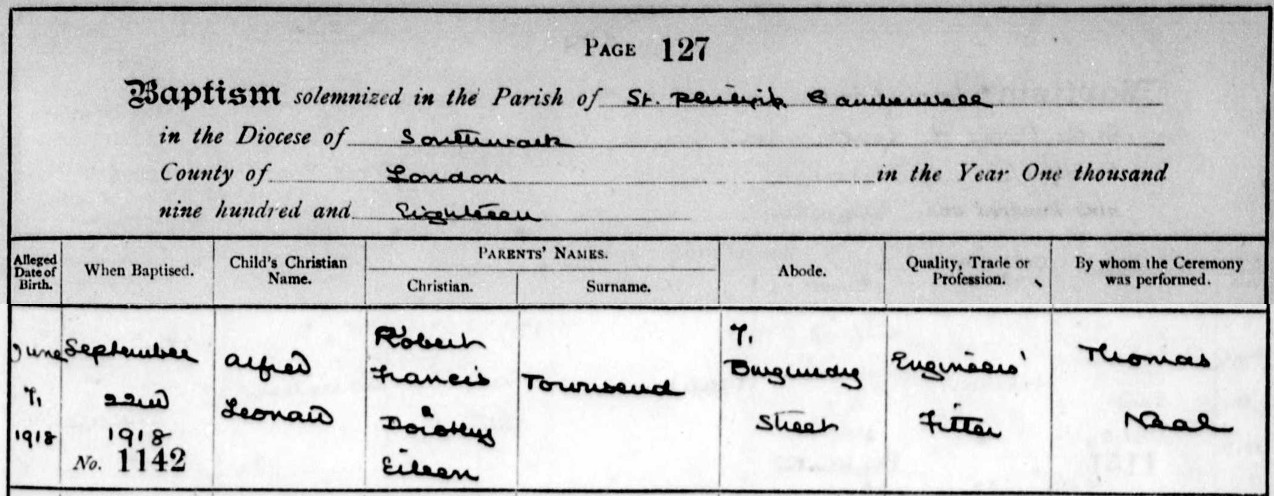 PAGE 127
Baptism solemnized in the Parish of St. Camberwell
in the Diocese of Southwark
County of London in the Year One thousand
nine hundred and Eighteen
Alleged Date of Birth.
When Baptised.
Child's Christian Name.
PARENTS' NAMES.
Christian.
Surname.
Abode.
Quality, Trade or Profession.
By whom the Ceremony was performed.
June
7,
1918
September
22nd
1918
No. 1142
Alfred
Leonard
Robert
Francis
&
Dorothy
Eileen
Townsend
7,
Burgundy
Street
Engineers'
Fitter
Thomas
Neal